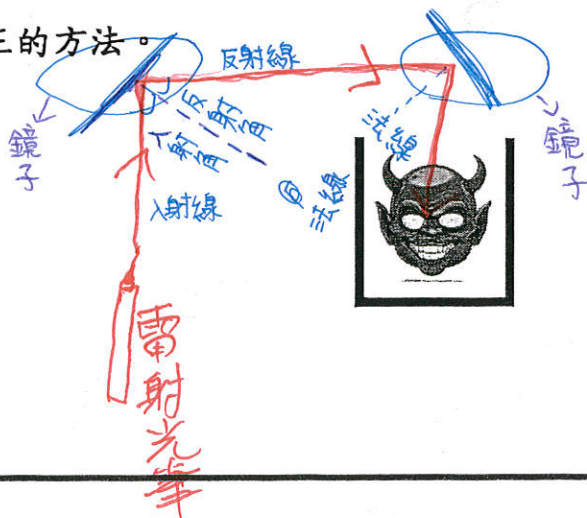 王的方法。
反射線
鏡子
反射角
入射角
入射線
法線
法線
鏡子
雷射光筆